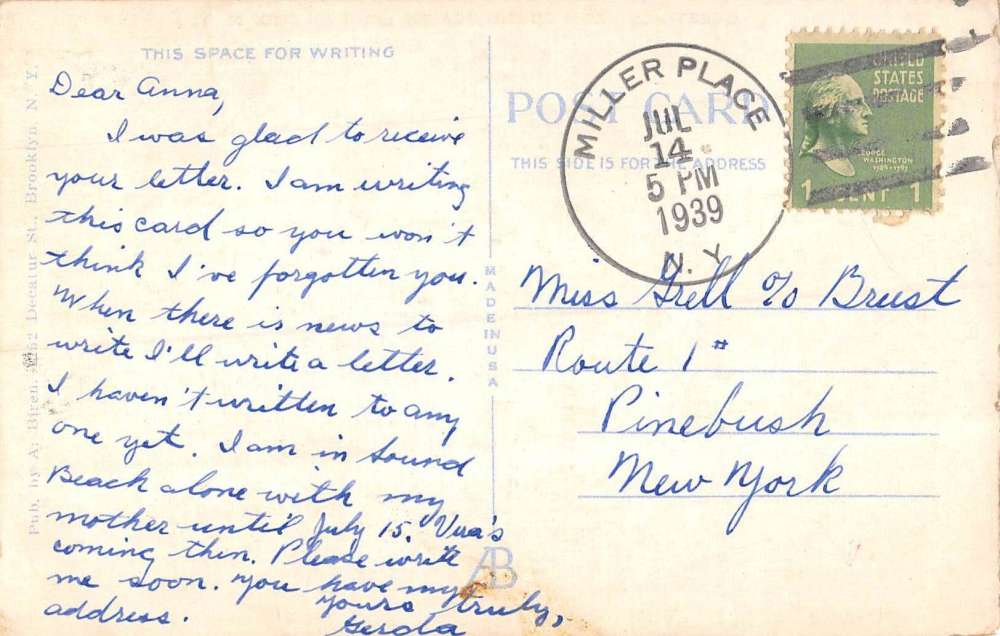 THIS SPACE FOR WRITING
Dear Anna,
I was glad to receive
your letter. I am writing
this card so you won't
think I've forgotten you.
When there is news to
write I'll write a letter.
I haven't written to any
one yet. I am in Sound
Beach alone with my
mother until July 15. Vera's
coming then. Please write
me soon. You have my
address.
Yours truly,
Gerda
Pub. by A. Biren, Decatur St., Brooklyn, N. Y.
MADE IN USA
AB
POST CARD
THIS SIDE IS FOR THE ADDRESS
MILLER PLACE
JUL
14
5 PM
1939
N. Y.
UNITED
STATES
POSTAGE
GEORGE
WASHINGTON
1789-1797
1 CENT 1
Miss Grell c/o Brust
Route 1#
Pinebush
New York